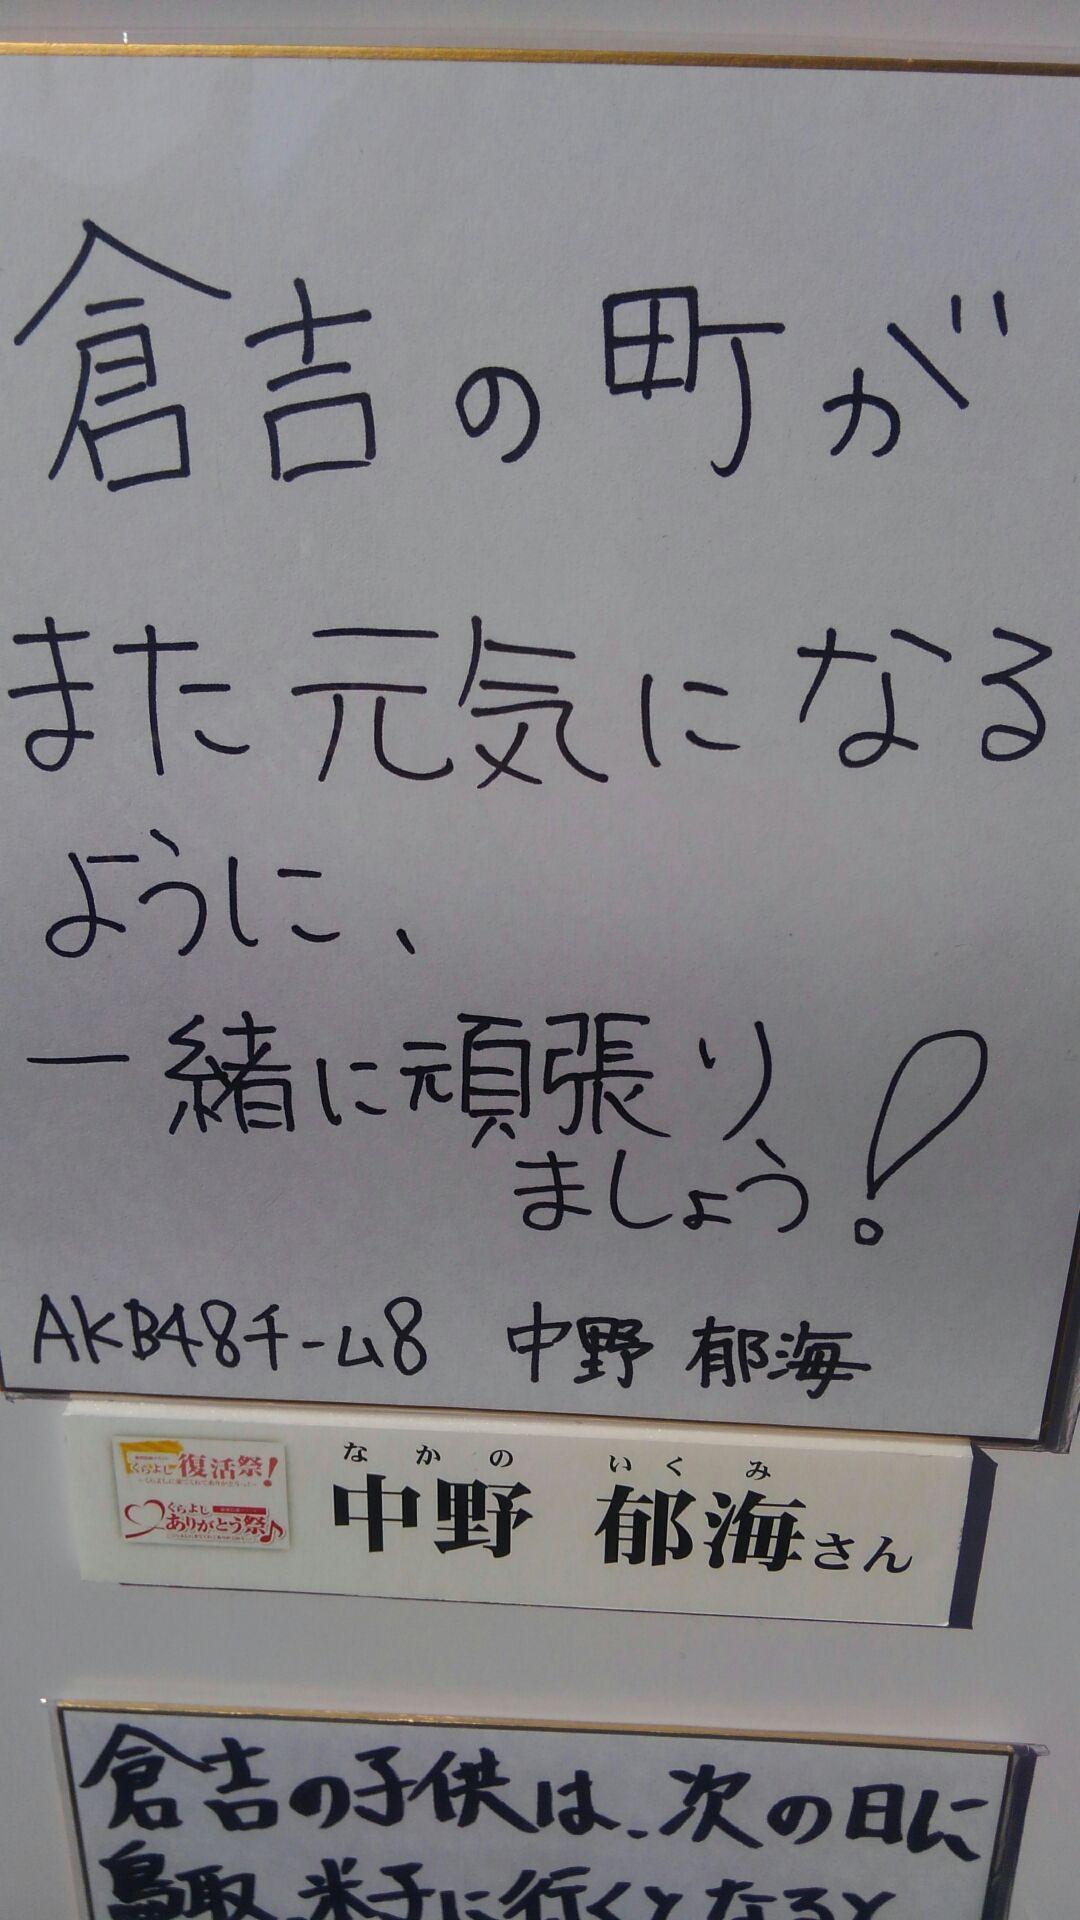 倉吉の町が
また元気になる
ように、
一緒に元頑張り
ましょう!
AKB48チーム8 中野 郁海
くらよし復活祭!
くらよし
ありがとう祭♪
なかの いくみ
中野 郁海さん
倉吉の子供は、次の日に
鳥取、米子に行くとなると